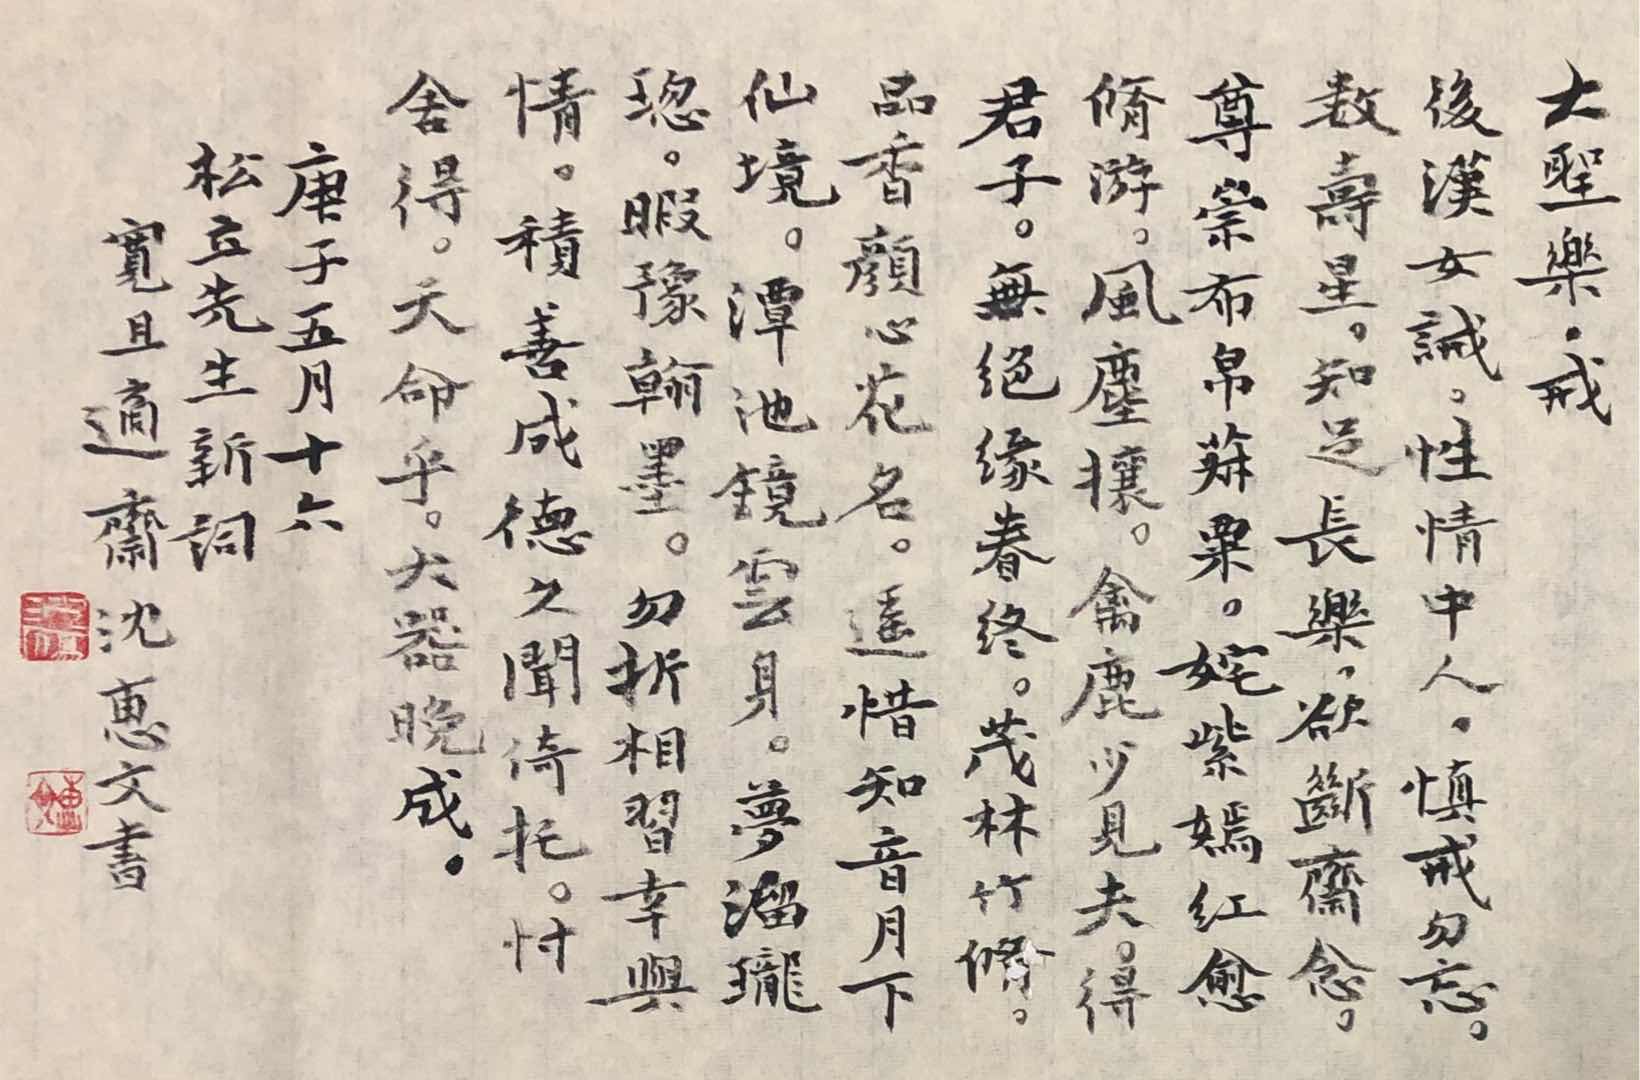 大聖樂.戒
後漢女誡。性情中人.慎戒勿忘。
教壽星。知足長樂.欲斷齋念。
尊崇布帛菽粟。姹紫嫣紅愈
脩游。風塵攘。禽鹿少見夫。得
君子。無絕緣春終。茂林竹脩。
品香顏心花名。遥惜知音月下
仙境。潭池鏡雲身。夢溜瓏
璁。暇豫翰墨。勿折相習幸與
情。積善成德之聞倚托。忖
舍得。天命乎。大器晚成.
庚子五月十六
松立先生新詞
寬且適齋沈惠文書